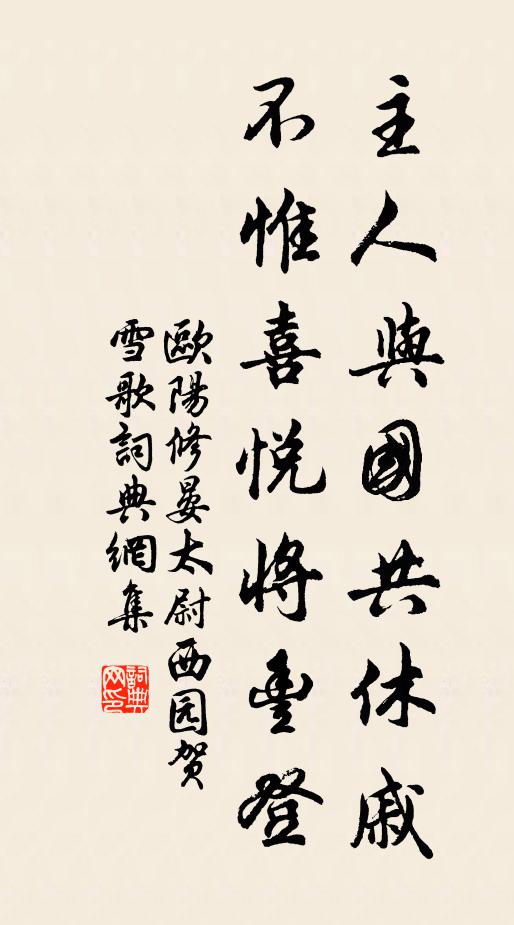 主人與國共休戚
不惟喜悅將豐登
歐陽修晏太尉西园贺
雪歌詞典網集
詞典
网印